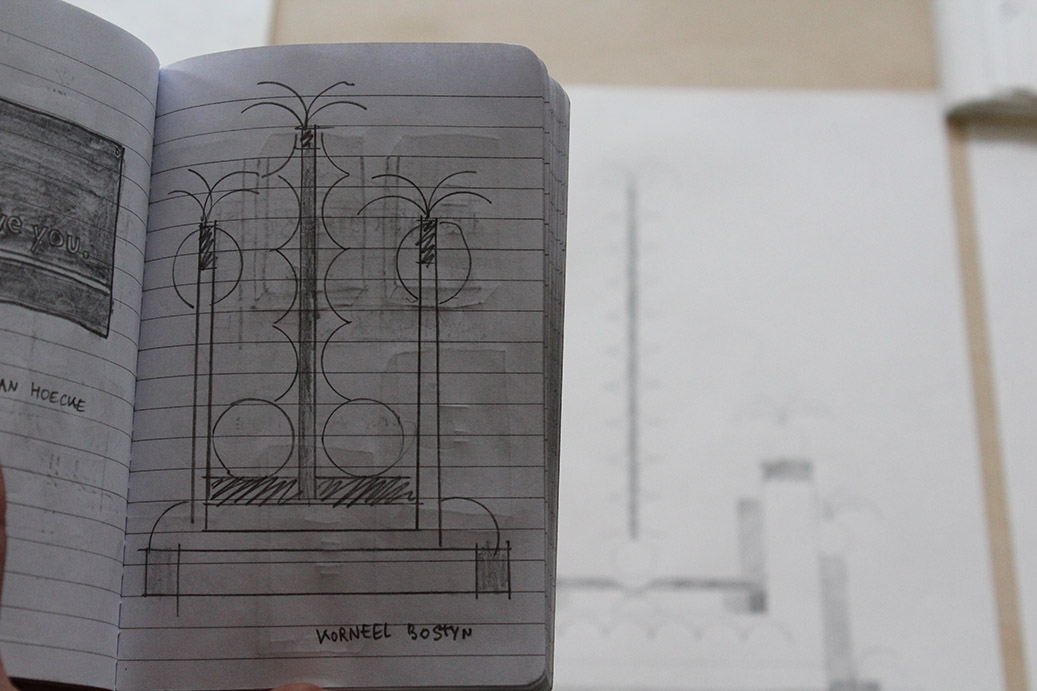 ve you.
AN HOECKE
KORNEEL BOSTYN